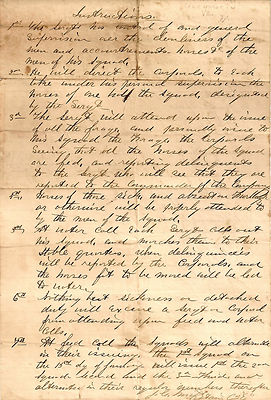 Instructions.
1st The Sergt has control of and general
supervision over the cleanliness of the
men and accoutrements horses &c of the
men of his Squad.
2nd He will direct the Corporals to each
take under his personal supervision the
horses of one half the Squad, designated
by the Sergt
3d The Sergt will attend upon the issue
of all the forage, and personally issue to
his Squad the forage the Corporals
seeing that all the horses of the Squad
are fed, and reporting delinquents
to the Sergt who will see that they are
reported to the Commander of the Company
4th Horses of those sick, and absent on
or otherwise will be properly attended to
by the men of the Squad,
5th At water Call Each Sergt calls out
his Squad, and marches them to their
Stable quarters, when delinquencies
will be reported by the Corporals and
the horses fit to be moved will be led
to water,
6th Nothing but sickness or detached
duty will excuse a Sergt or Corporal
from attending upon feed and water
Calls,
7th At feed Call the Squads will alternate
in their issuing, the 1st Squad on
the 1st dy of feeding will issue 1st the 2nd
Squad Second and the 3rd Third, and
alternate in their regular numbers thereafter